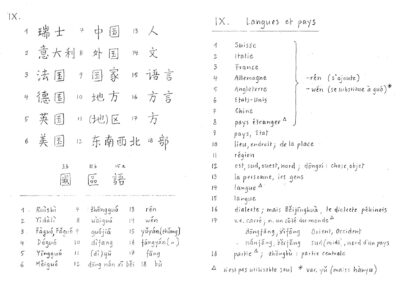 IX.
1 瑞士 7 中国 13 人
2 意大利 8 外国 14 文
3 法国 9 国家 15 语言
4 德国 10 地方 16 方言
5 英国 11 (地)区 17 方
6 美国 12 东南西北 18 部
3b 11b 15a
國 區 語
1 Ruìshì 7 zhōngguó 13 rén
2 Yìdàlì 8 wàiguó 14 wén
3 Fǎguó, Fàguó 9 guójiā 15 yǔyán
4 Déguó 10 dìfang 16 fāngyán
5 Yīngguó 11 (dì)qū 17 fāng
6 Měiguó 12 dōng nán xī běi 18 bù
IX. Langues et pays
1 Suisse
2 Italie
3 France
4 Allemagne
5 Angleterre
6 Etats-Unis
7 Chine
8 pays étranger
-rén (s'ajoute)
-wén (se substitue à guó)*
9 pays, Etat
10 lieu, endroit; de la place
11 région
12 est, sud, ouest, nord; dōngxi: chose, objet
13 la personne, les gens
14 langue
15 langue
16 dialecte; mais Běijīnghuà, le dialecte pékinois
17 carré; un côté du monde
dōngfāng, xīfāng Orient, Occident
nánfāng, běifāng sud/midi, nord d'un pays
18 partie; zhōngbù: partie centrale
Δ n'est pas utilisable seul * var. yǔ (mais hànyǔ)